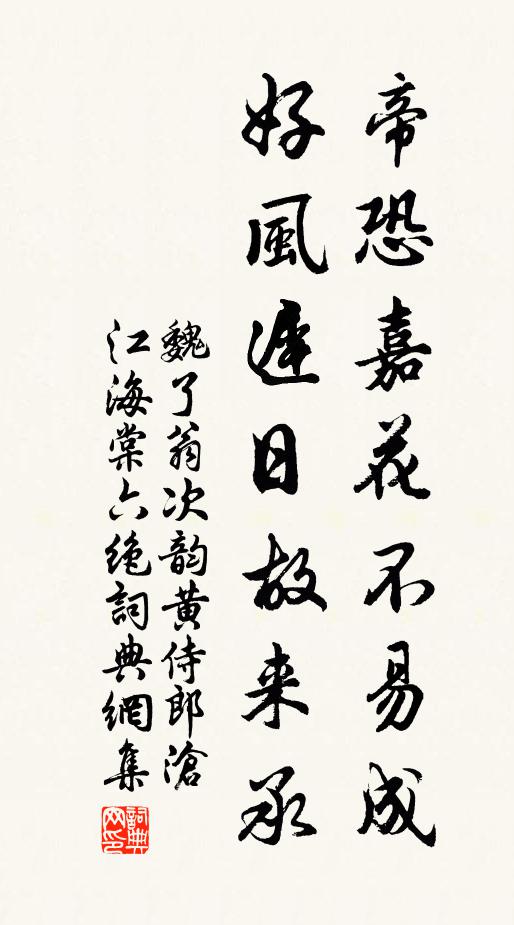 帝恐嘉花不易成
好風遲日故来承
魏了翁次韵黄侍郎滄
江海棠六绝詞典網集
詞典网印